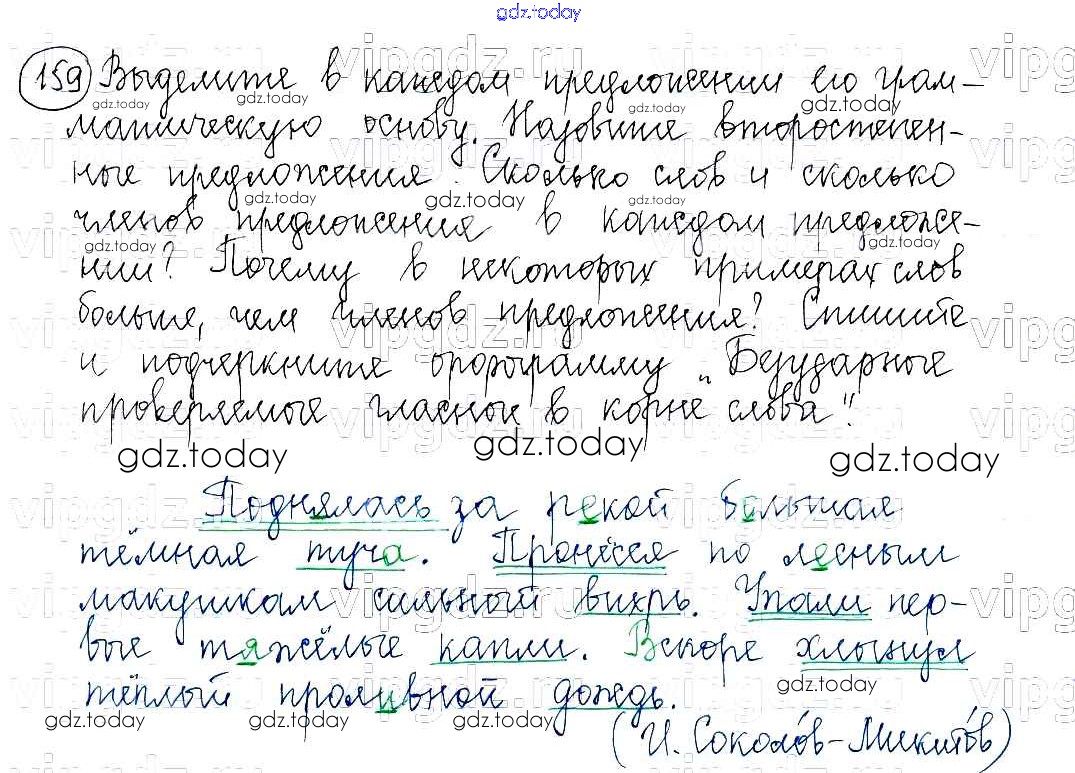 gdz.today
159 Выделите в каждом предложении его грам-
матическую основу. Назовите второстепен-
ные предложения. Сколько слов и сколько
членов предложения в каждом предложе-
нии? Почему в некоторых примерах слов
больше, чем членов предложения? Спишите
и подчеркните орфограмму „Безударные
проверяемые гласные в корне слова".
gdz.today gdz.today gdz.today
Поднялась за рекой большая
тёмная туча. Пронёсся по лесным
макушкам сильный вихрь. Упали пер-
вые тяжёлые капли. Вскоре хлынул
тёплый проливной дождь.
gdz.today gdz.today gdz.today
(И. Соколо́в-Микито́в)